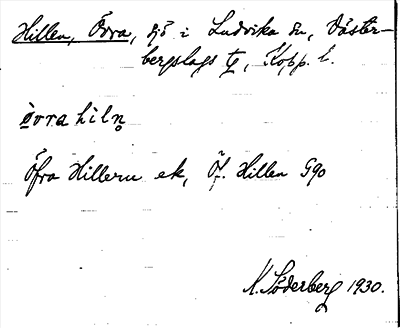 Hillen, Övra, sjö i Ludvika sn, Väster-
bergslags tg, Kopp. l.
òvra hiln̥
Öfra Hillern ek, Ö. Hillen G90
N. Söderberg 1930.